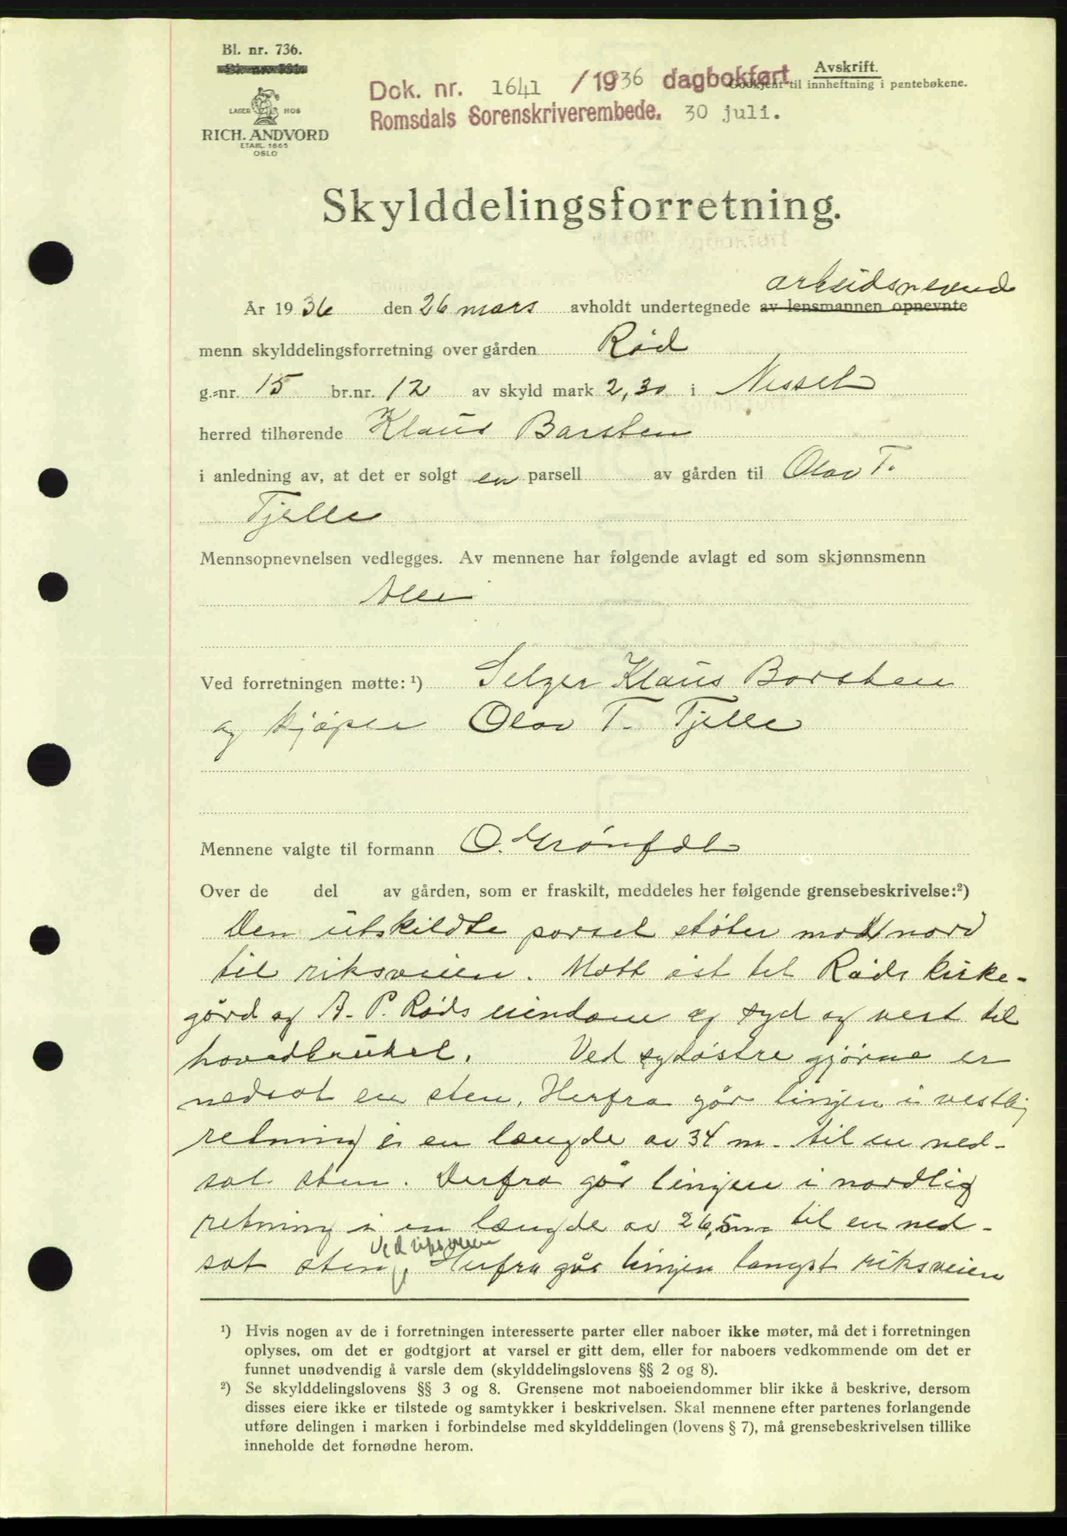 Bl. nr. 736.
Avskrift.
Dok. nr. 1641 /1936 dagbokført
Godkjent til innheftning i pantebøkene.
Romsdals Sorenskriverembede. 30 juli.
LAGER HOS
RICH. ANDVORD
ETABL. 1865
OSLO
Skylddelingsforretning.
arbeidsnevnd
År 1936 den 26 mars avholdt undertegnede av lensmannen opnevnte
menn skylddelingsforretning over gården Rød
g.-nr. 15 br.nr. 12 av skyld mark 2,30 i Nesset
herred tilhørende Klaus Barsten
i anledning av, at det er solgt en parsell av gården til Olav T.
Tjelle
Mennsopnevnelsen vedlegges. Av mennene har følgende avlagt ed som skjønnsmenn
Alle
Ved forretningen møtte: ¹) Selger Klaus Borsten
og kjøper Olav T. Tjelle
Mennene valgte til formann O. Grønfdl
Over de del av gården, som er fraskilt, meddeles her følgende grensebeskrivelse:²)
Den utskildte parsel støter mod nord
til riksveien. Mott øst til Røds kirke-
gård og A. P. Røds eiendom og syd og vest til
hovedbruket. Ved sydøstre hjørne er
nedsat en sten. Herfra går linjen i vestlig
retning i en længde av 34 m. til en ned-
sat sten. Derfra går linjen i nordlig
retning i en længde av 26,5 m. til en ned-
ved riksveien
sat sten. Herfra går linjen langst riksveien
¹) Hvis nogen av de i forretningen interesserte parter eller naboer ikke møter, må det i forretningen
oplyses, om det er godtgjort at varsel er gitt dem, eller for naboers vedkommende om det er
funnet unødvendig å varsle dem (skylddelingslovens §§ 2 og 8).
²) Se skylddelingslovens §§ 3 og 8. Grensene mot naboeiendommer blir ikke å beskrive, dersom
disses eiere ikke er tilstede og samtykker i beskrivelsen. Skal mennene efter partenes forlangende
utføre delingen i marken i forbindelse med skylddelingen (lovens § 7), må grensebeskrivelsen tillike
inneholde det fornødne herom.